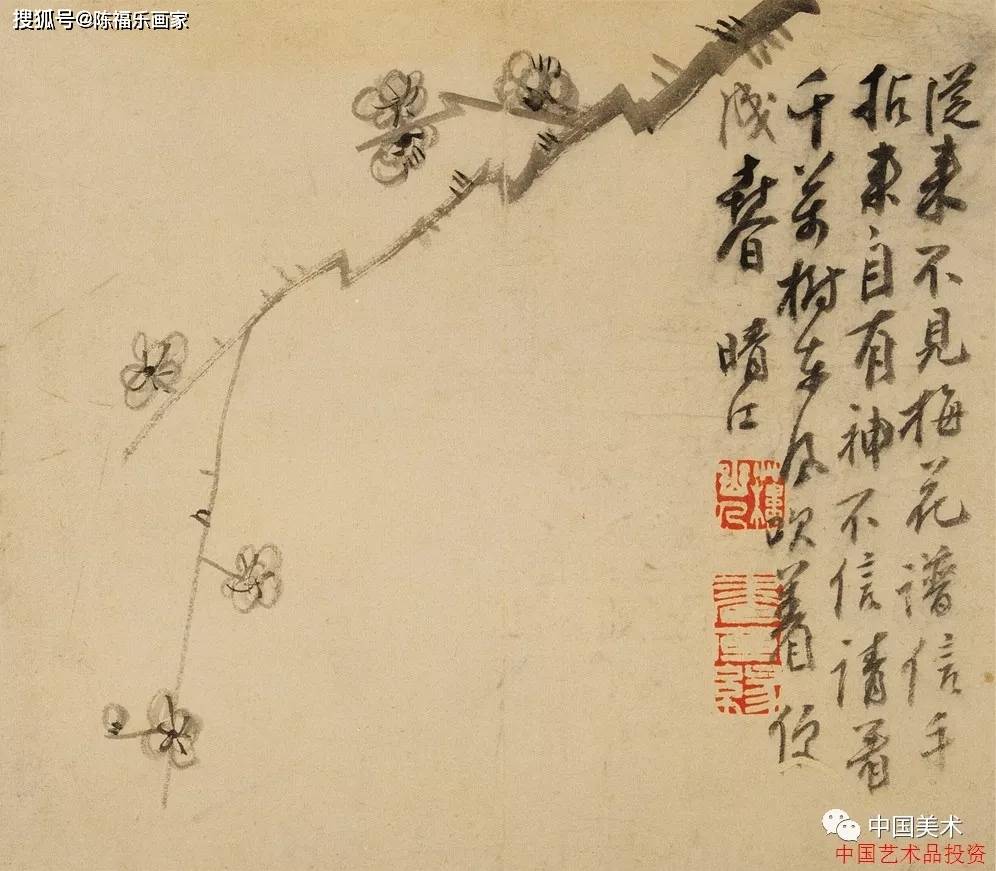 搜狐号@陈福乐画家
從来不見梅花譜信手
拈来自有神不信請看
千萬樹東風吹着便
成春 晴江
中国美术
中国艺术品投资